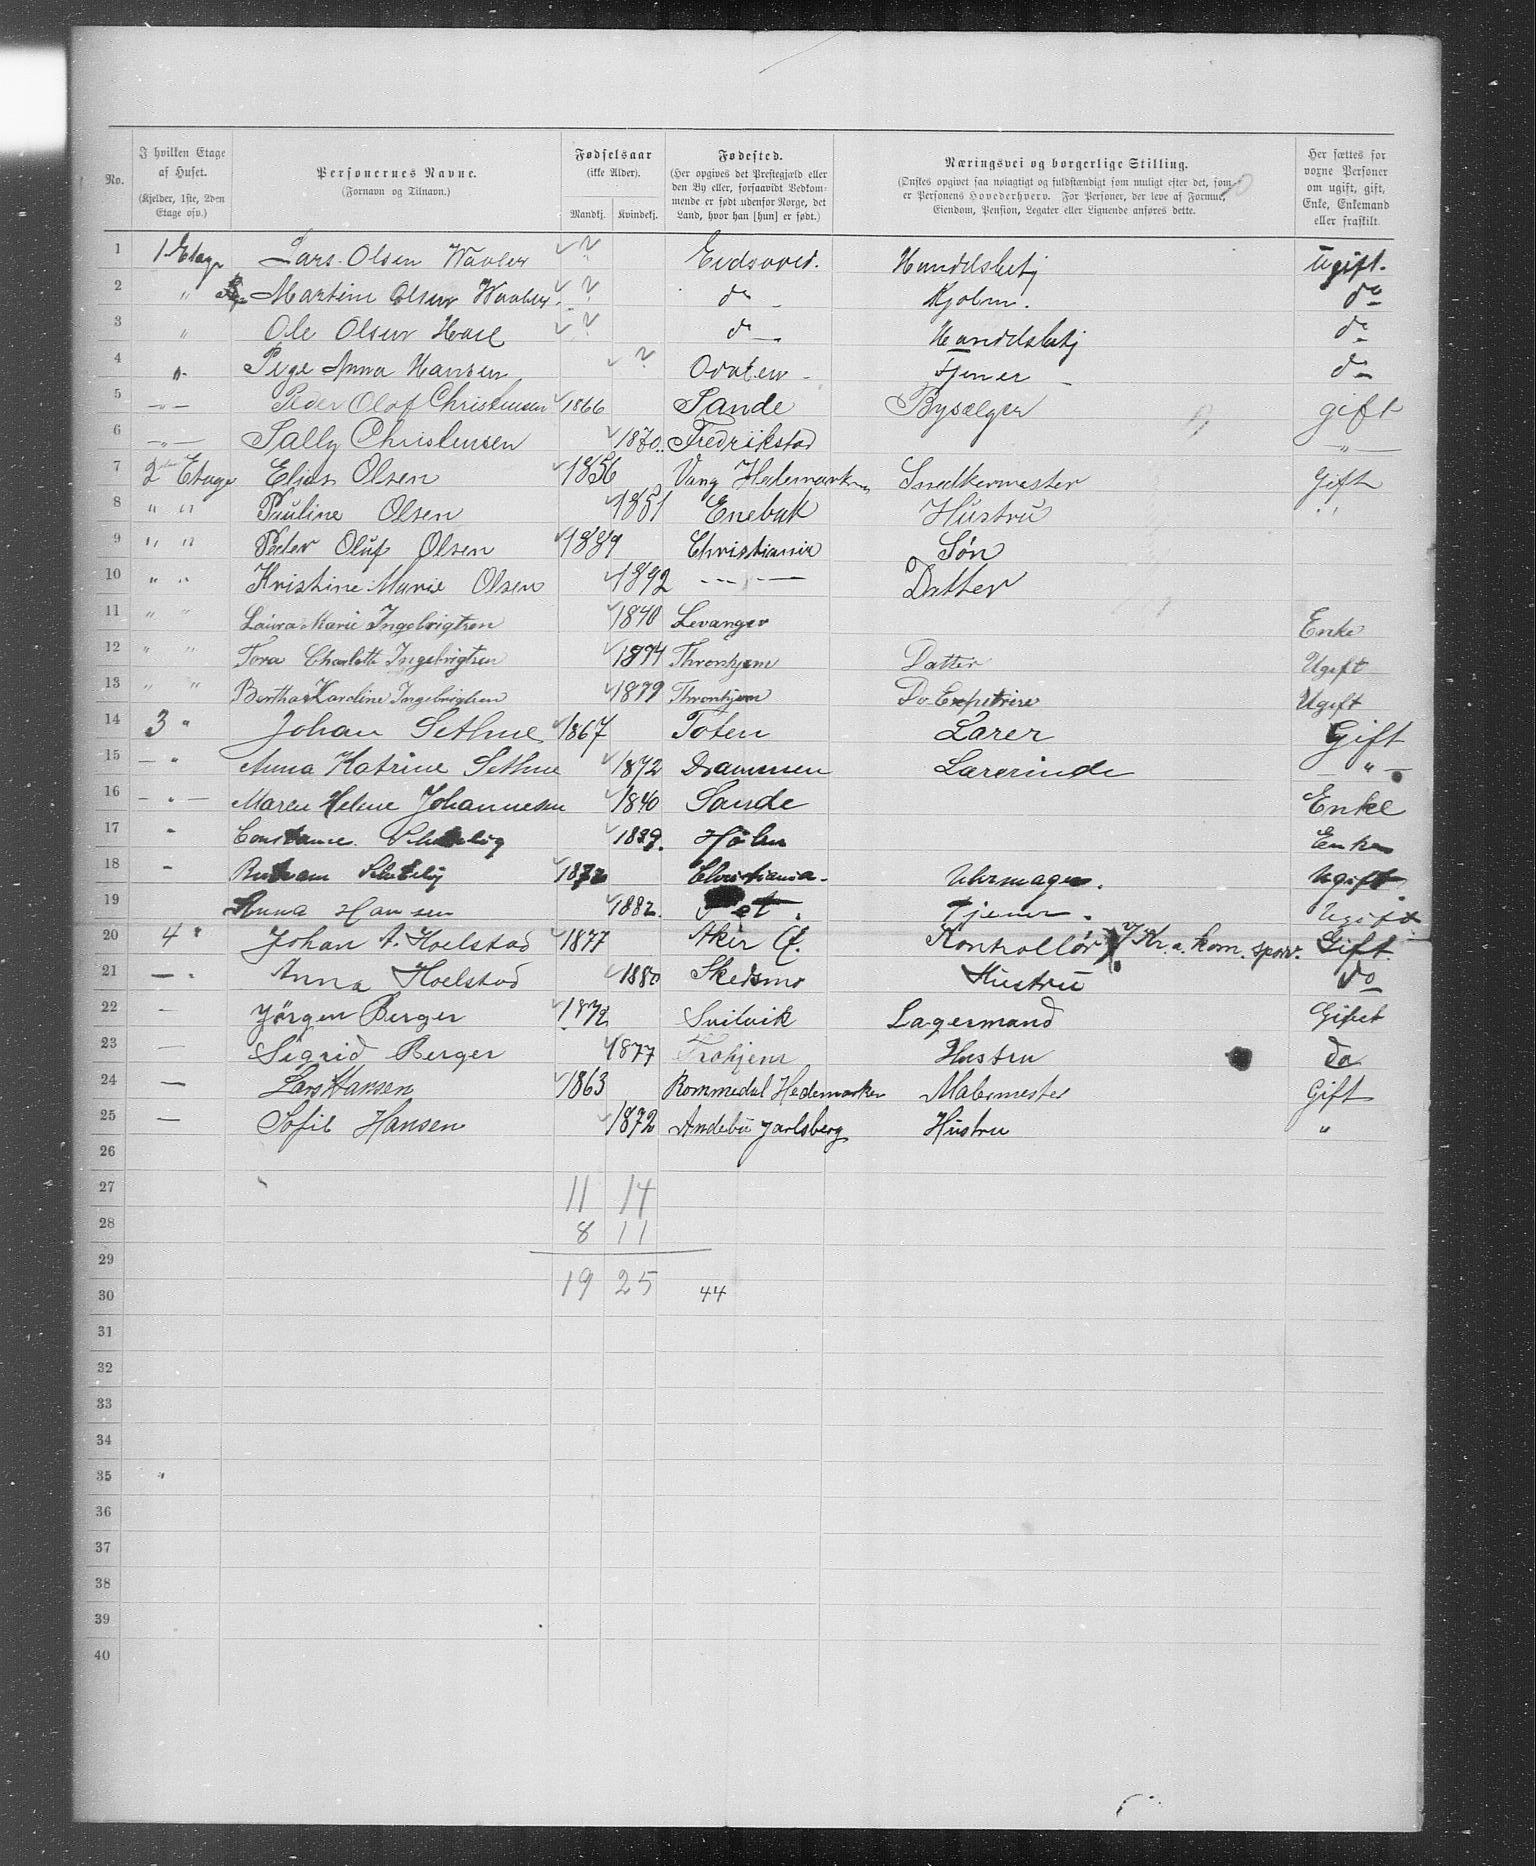 No. | I hvilken Etage af Huset. (Kjelder, 1ste, 2den Etage osv.) | Personernes Navne. (Fornavn og Tilnavn.) | Fødselsaar (ikke Alder). Mandkj. Kvindekj. | Fødested. (Her opgives det Prestegjæld eller den By eller, forsaavidt Vedkommende er født udenfor Norge, det Land, hvor han [hun] er født.) | Næringsvei og borgerlige Stilling. (Ønskes opgivet saa nøiagtigt og fuldstændigt som muligt efter det, som er Personens Hovederhverv. For Personer, der leve af Formue, Eiendom, Pension, Legater eller Lignende anføres dette. | Her sættes for voxne Personer om ugift, gift, Enke, Enkemand eller fraskilt
1 1 Etage Lars Olsen ? Eidsvold. Handelsbetj Ugift.
2 " Martin Olsen ? do Kjøbm. do
3 " Ole Olsen ? do Handelsbetj do
4 " Pige Anna Hansen ? Odalen Tjener do
5 " Peder Olaf Christensen 1866 Sande Bysælger gift
6 " Sally Christensen 1870 Fredrikstad "
7 2den Etage Elias Olsen 1856 Vang Hedemarken Snedkermester Gift
8 " " Pauline Olsen 1851 Enebak Hustru "
9 " " Peder Oluf Olsen 1889 Christiania Søn
10 " " Kristine Marie Olsen 1892 " Datter
11 " " Laura Marie Ingebrigtsen 1840 Levanger Enke
12 " " Tora Charlotte Ingebrigtsen 1874 Thronhjem Datter Ugift
13 " " Bertha Karoline Ingebrigtsen 1879 Thronhjem Do Expetrise Ugift
14 3 " Johan Sethne 1867 Toten Lærer Gift
15 " Anna Katrine Sethne 1872 Drammen Lærerinde "
16 " Maren Helene Johannesen 1840 Sande Enke
17 " Constance 1839. Hölen Enke
18 1872 Christiania Uhrmager. Ugift
19 Anna Hansen 1882. Tjener. Ugift
20 4 " Johan A. Hoelstad 1877 Aker Kontrollør V Kr. a. kom. sporv. Gift.
21 " Anna Hoelstad 1880 Skedsmo Hustru do
22 Jørgen Berger 1872 Svelvik Lagermand Gift
23 Sigrid Berger 1877 Trohjem Hustru do
24 Lars Hansen 1863 Rommedal Hedemarken Malermester Gift
25 Sofie Hansen 1872 Andebu Jarlsberg Hustru "
26
27 11 14
28 8 11
29
30 19 25 44
31
32
33
34
35 "
36
37
38
39
40